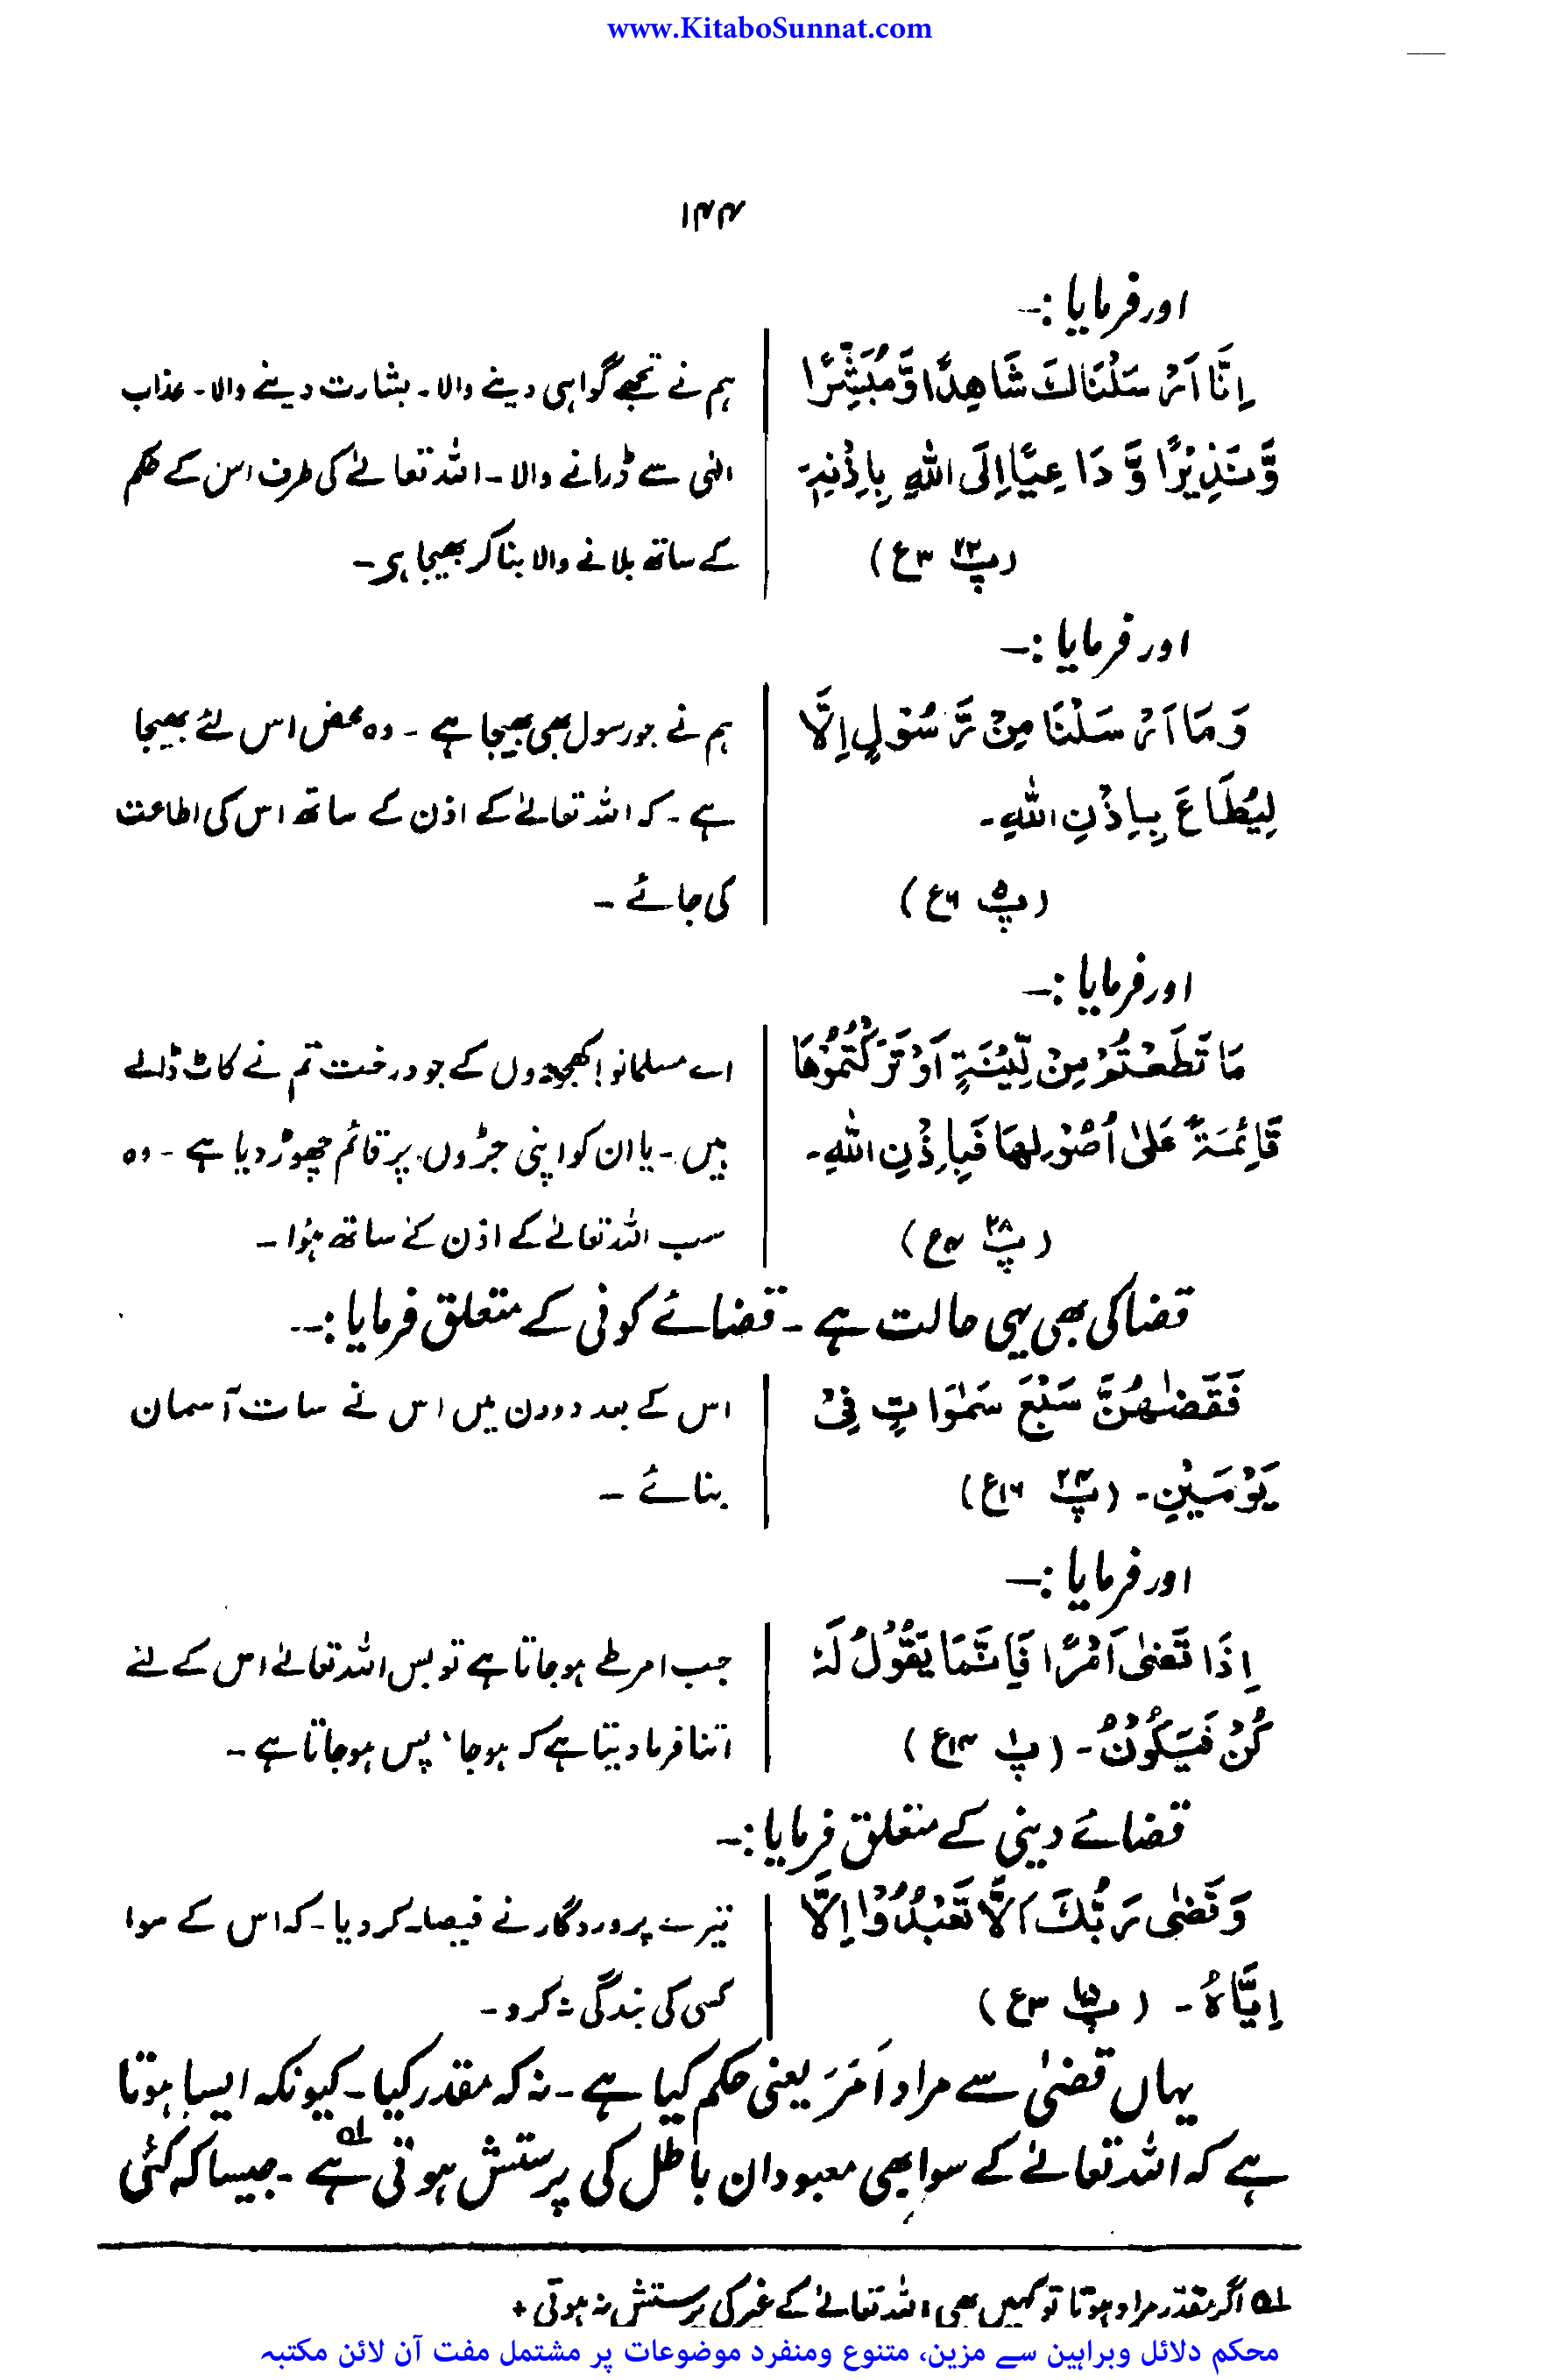 www.KitaboSunnat.com
۱۴۴
اور فرمایا :—
اِنَّا اَرْسَلْنَاكَ شَاهِدًا وَّمُبَشِّرًا
وَّنَذِيْرًا وَّدَاعِيًا اِلَى اللهِ بِاِذْنِهٖ
(پ ۲۲ ع ۳)
ہم نے تجھے گواہی دینے والا۔ بشارت دینے والا۔ عذاب
الٰہی سے ڈرانے والا۔ اللہ تعالےٰ کی طرف اس کے حکم
کے ساتھ بلانے والا بنا کر بھیجا ہی۔
اور فرمایا :—
وَمَا اَرْسَلْنَا مِنْ رَّسُوْلٍ اِلَّا
لِيُطَاعَ بِاِذْنِ اللهِ۔
(پ ۵ ع ۶)
ہم نے جو رسول بھی بھیجا ہے۔ وہ محض اس لئے بھیجا
ہے۔ کہ اللہ تعالےٰ کے اذن کے ساتھ اس کی اطاعت
کی جائے۔
اور فرمایا :—
مَا قَطَعْتُمْ مِنْ لِّيْنَةٍ اَوْ تَرَكْتُمُوْهَا
قَائِمَةً عَلٰى اُصُوْلِهَا فَبِاِذْنِ اللهِ۔
(پ ۲۸ ع ۴)
اے مسلمانو! کھجوروں کے جو درخت تم نے کاٹ ڈالے
ہیں۔ یا ان کو اپنی جڑوں پر قائم چھوڑ دیا ہے۔ وہ
سب اللہ تعالےٰ کے اذن کے ساتھ ہؤا۔
قضا کی بھی یہی حالت ہے۔ قضائے کونی کے متعلق فرمایا :—
فَقَضٰهُنَّ سَبْعَ سَمٰوَاتٍ فِىْ
يَوْمَيْنِ۔ (پ ۲۴ ع ۱۶)
اس کے بعد دو دن میں اس نے سات آسمان
بنائے۔
اور فرمایا :—
اِذَا قَضٰى اَمْرًا فَاِنَّمَا يَقُوْلُ لَهٗ
كُنْ فَيَكُوْنُ۔ (پ ۱ ع ۱۴)
جب امر طے ہو جاتا ہے تو بس اللہ تعالےٰ اس کے لئے
اتنا فرما دیتا ہے کہ ہو جا، پس ہو جاتا ہے۔
قضائے دینی کے متعلق فرمایا :—
وَقَضٰى رَبُّكَ اَلَّا تَعْبُدُوْا اِلَّا
اِيَّاهُ۔ (پ ۱۵ ع ۳)
تیرے پروردگار نے فیصلہ کر دیا۔ کہ اس کے سوا
کسی کی بندگی نہ کرو۔
یہاں قضیٰ سے مراد اَمَرَ یعنی حکم کیا ہے۔ نہ کہ مقدر کیا۔ کیونکہ ایسا ہوتا
ہے کہ اللہ تعالےٰ کے سوا بھی معبودان باطل کی پرستش ہوتی ہے۔ ۱ه جیسا کہ کئی
۱ه اگر مقدر مراد ہوتا تو کہیں بھی اللہ تعالےٰ کے غیر کی پرستش نہ ہوتی +
محکم دلائل وبراہین سے مزین، متنوع ومنفرد موضوعات پر مشتمل مفت آن لائن مکتبہ